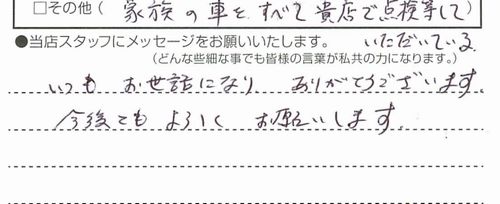 □その他（家族の車をすべて貴店で点検等して）
●当店スタッフにメッセージをお願いいたします。いただいている
（どんな些細な事でも皆様の言葉が私共の力になります。）
いつも お世話になり ありがとうございます。
今後とも よろしく お願いします。